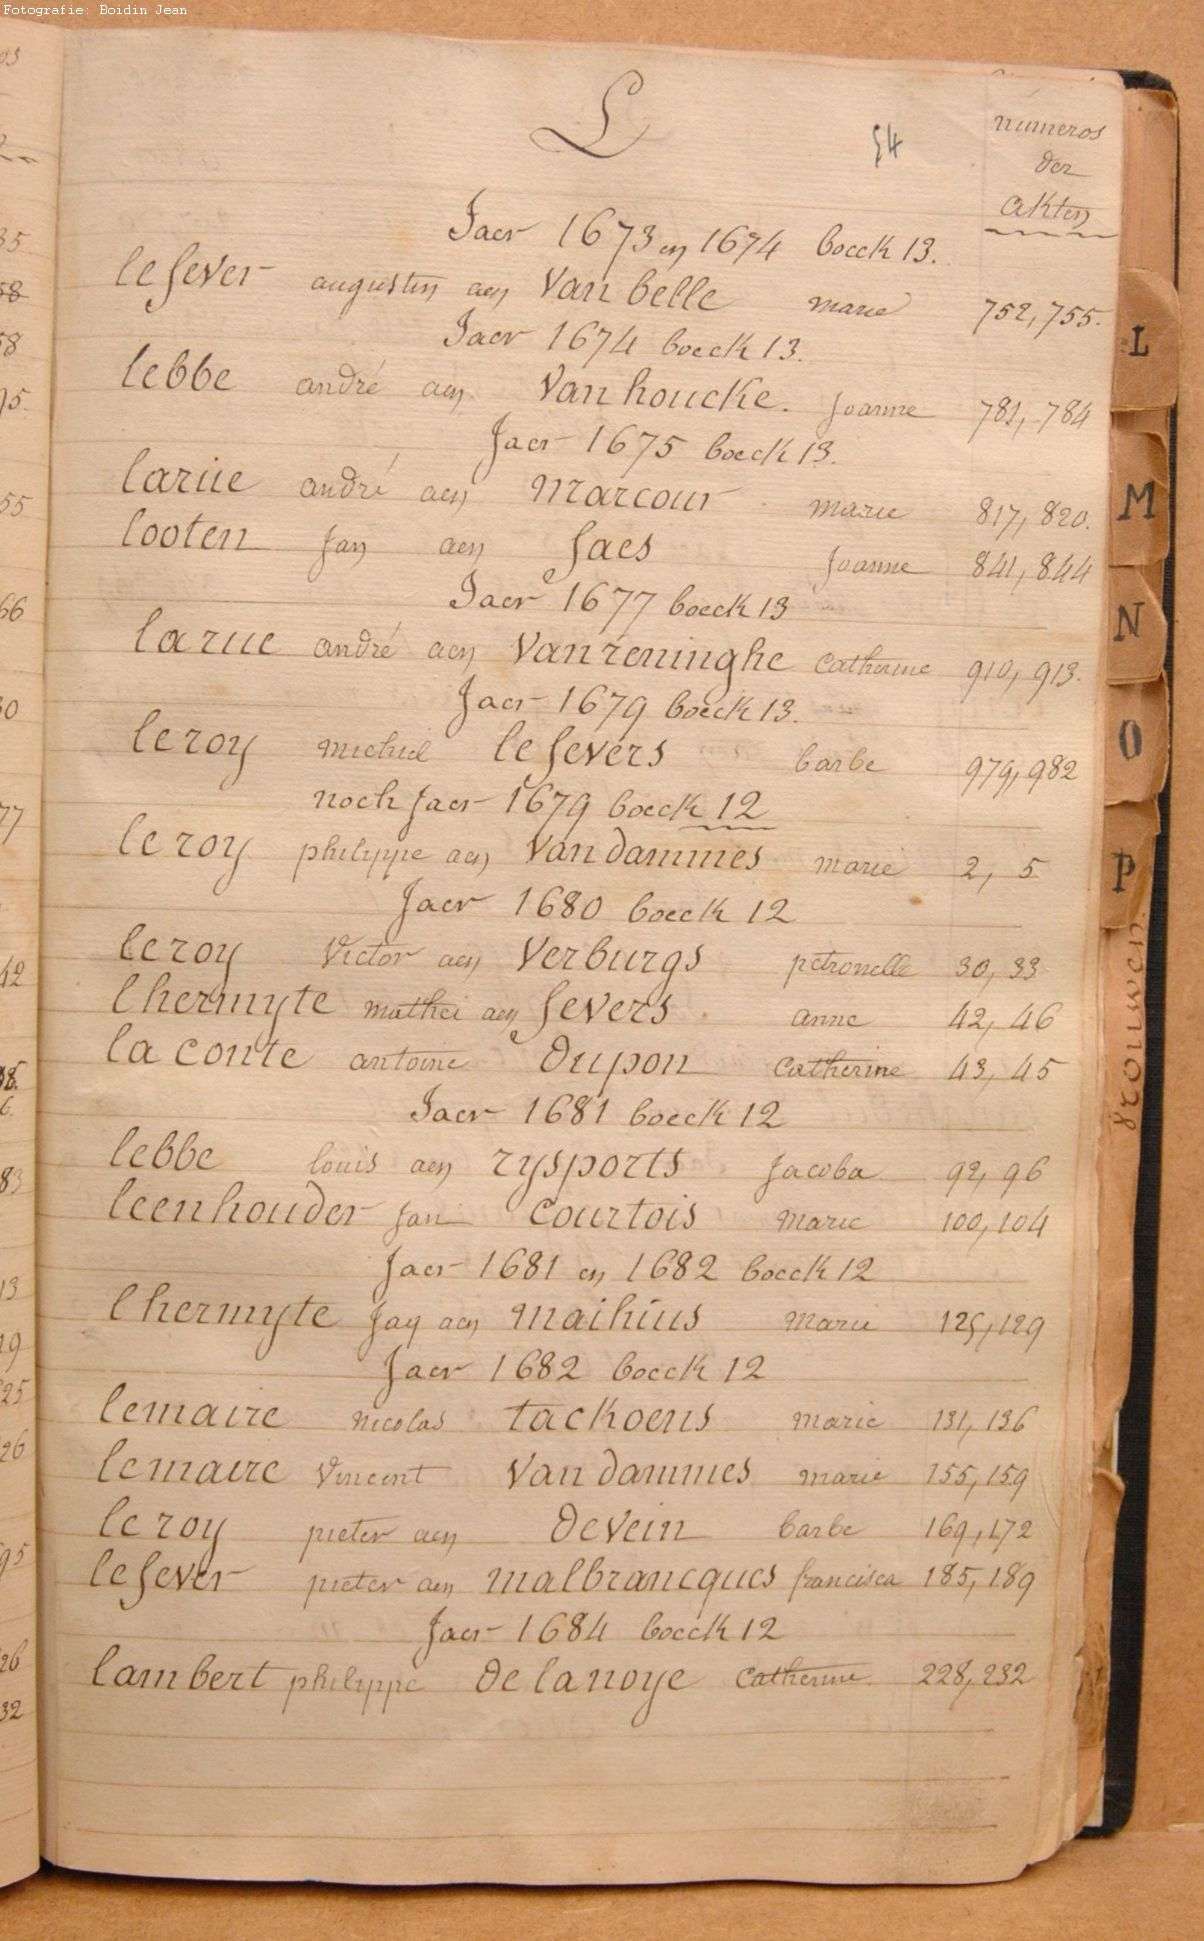 Fotografie: Boidin Jean
L
54
numeros
der
akten
Jaer 1673 en 1674 boeck 13.
lefever augustin aen Van belle marie 752, 755.
Jaer 1674 boeck 13.
lebbe andré aen Van houcke. Joanne 781, 784
Jaer 1675 boeck 13.
larue andré aen marcour marie 817, 820.
looten Jan aen faes Joanne 841, 844
Jaer 1677 boeck 13
larue andré aen Vanreninghe catherine 910, 913.
Jaer 1679 boeck 13.
leroy michiel lefevers barbe 979, 982
noch Jaer 1679 boeck 12
leroy philippe aen Van dammes marie 2, 5
Jaer 1680 boeck 12
leroy Victor aen Verburgs petronelle 30, 33
lhermyte mathei aen fevers anne 42, 46
la conte antoine dupon catherine 43, 45
Jaer 1681 boeck 12
lebbe louis aen rysports Jacoba 92, 96
leenhouder Jan courtois marie 100, 104
Jaer 1681 en 1682 boeck 12
lhermyte Jaq aen maihius marie 125, 129
Jaer 1682 boeck 12
lemaire nicolas tackoens marie 131, 136
lemaire Vincent Van dammes marie 155, 159
leroy pieter aen devein barbe 169, 172
lefever pieter aen malbrancques francisca 185, 189
Jaer 1684 boeck 12
lambert philippe de lanoye catherine 228, 232
L
M
N
O
P
vrouwen
35
58
58
95.
55
66
30
77
42
38.
6.
83
13
19
25
26
95
26
32